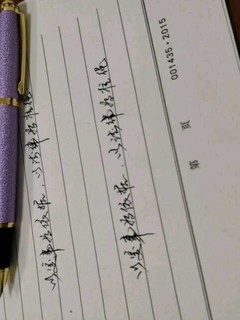 以实事为依据，以法律为准绳
以实事为依据，以法律为准绳
第 页 001435·2015